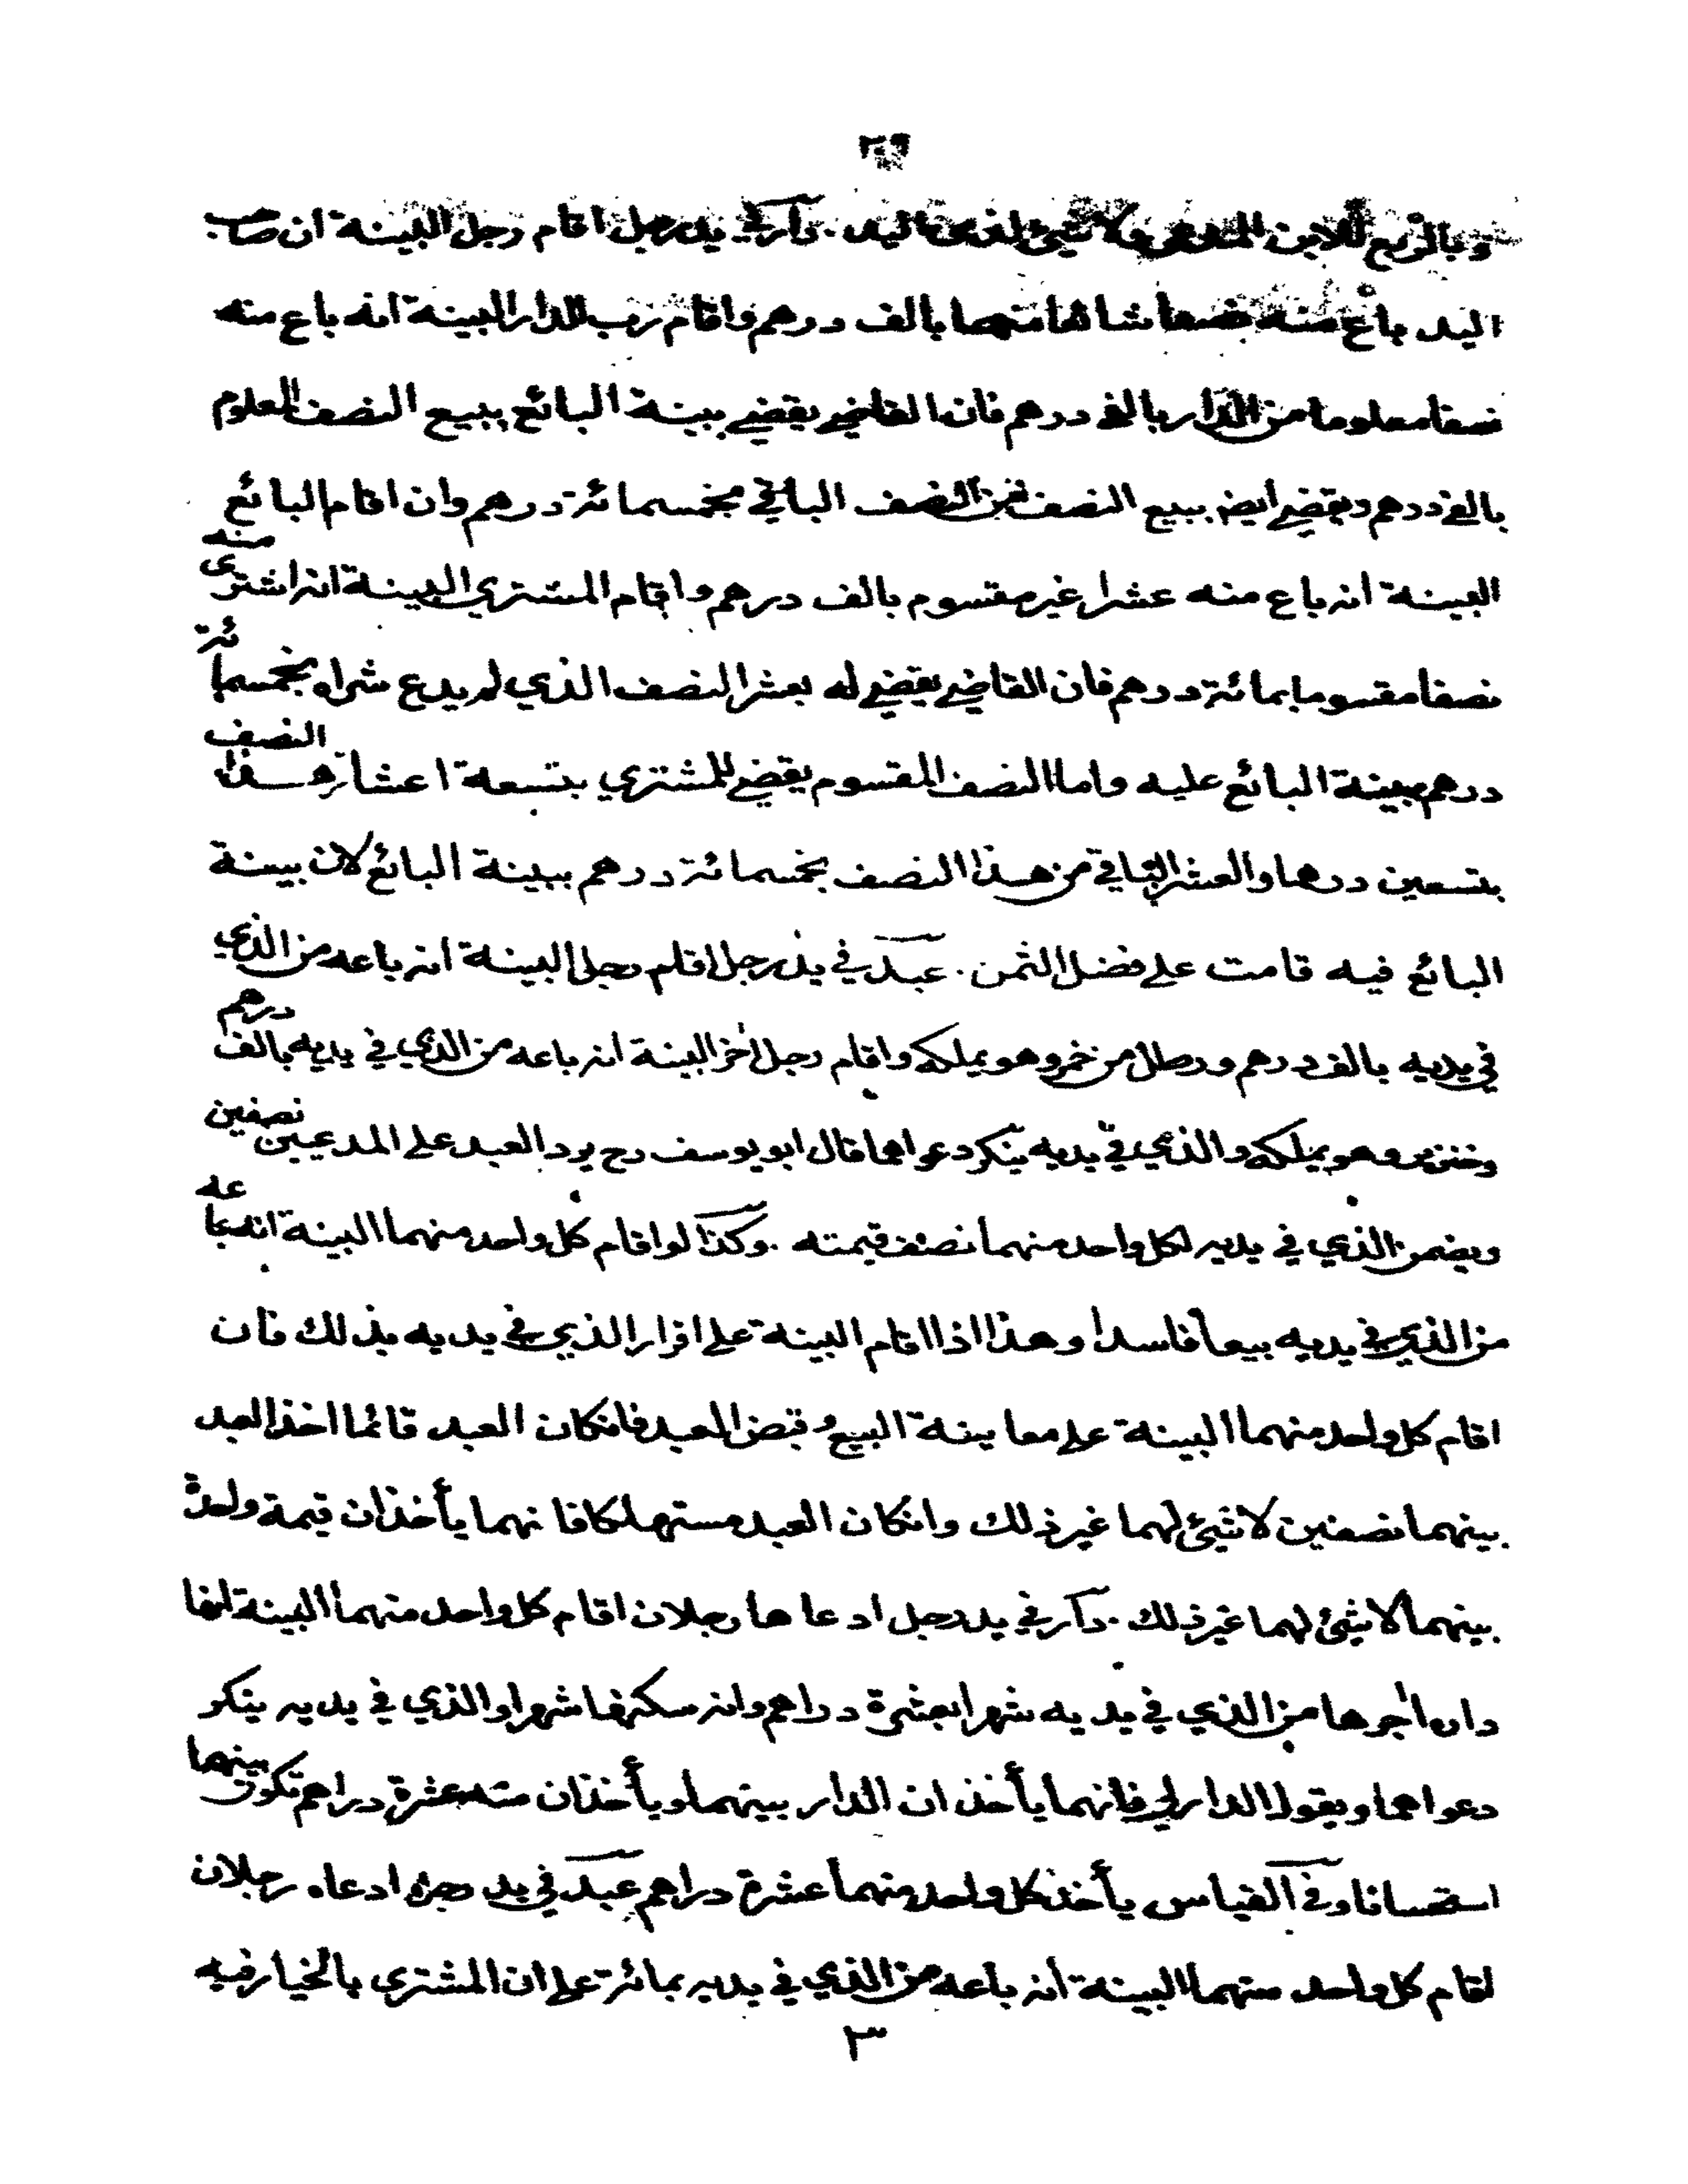 ٢٠٩
وبالربع للابن المدعي ولا شيئ لذي اليد . دار في يد رجل اقام رجل البينة ان صاحب
اليد باع منه نصفا شائعا منها بالف درهم واقام رب الدار البينة انه باع منه
نصفا معلوما من الدار بالف درهم فان القاضي يقضي ببينة البائع ببيع النصف المعلوم
بالف درهم ويقضي ايضا ببيع النصف من النصف الباقي بخمسمائة درهم وان اقام البائع
البينة انه باع منه عشرا غير مقسوم بالف درهم واقام المشتري البينة انه اشترى منه
نصفا مقسوما بمائة درهم فان القاضي يقضي له بعشر النصف الذي لم يدع شراه بخمسمائة
درهم ببينة البائع عليه واما النصف المقسوم يقضي للمشتري بتسعة اعشار هذا النصف
بتسعين درهما والعشر الباقي من هذا النصف بخمسمائة درهم ببينة البائع لان بينة
البائع فيه قامت على فضل الثمن . عبد في يد رجل اقام رجل البينة انه باعه من الذي
في يديه بالف درهم ورطل من خمر وهو يملكه واقام رجل اخر البينة انه باعه من الذي في يديه بالف درهم
وخنزير وهو يملكه والذي في يديه ينكر دعواهما قال ابو يوسف رح يرد العبد على المدعيين نصفين
ويضمن الذي في يديه لكل واحد منهما نصف قيمته . وكذا لو اقام كل واحد منهما البينة انه باعه
من الذي في يديه بيعا فاسدا وهذا اذا اقام البينة على اقرار الذي في يديه بذلك فان
اقام كل واحد منهما البينة على معاينة البيع وقبض العبد فانكان العبد قائما اخذ العبد
بينهما نصفين لا شيئ لهما غير ذلك وانكان العبد مستهلكا فانهما يأخذان قيمة واحدة
بينهما لا شيئ لهما غير ذلك . دار في يد رجل ادعاها رجلان اقام كل واحد منهما البينة انها
داره اجرها من الذي في يديه شهرا بعشرة دراهم وانه سكنها شهرا والذي في يديه ينكر
دعواهما ويقول الدار لي فانهما يأخذان الدار بينهما ويأخذان منه عشرة دراهم تكون بينهما
استحسانا وفي القياس يأخذ كل واحد منهما عشرة دراهم عبد في يد رجل ادعاه رجلان
اقام كل واحد منهما البينة انه باعه من الذي في يديه بمائة على ان المشتري بالخيار فيه
٣